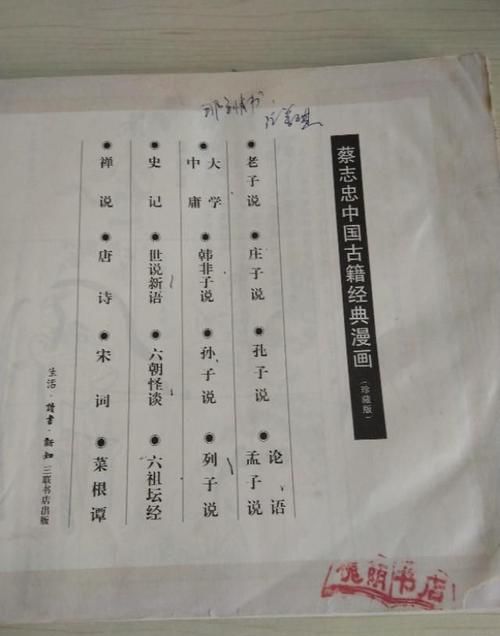 蔡志忠中国古籍经典漫画(珍藏版)
●老子说
●庄子说
●孔子说
●论语
孟子说
●大学
中庸
●韩非子说
●孙子说
●列子说
●史记
●世说新语
●六朝怪谈
●六祖坛经
●禅说
●唐诗
●宋词
●菜根谭
生活·讀書·新知三联书店出版
书店